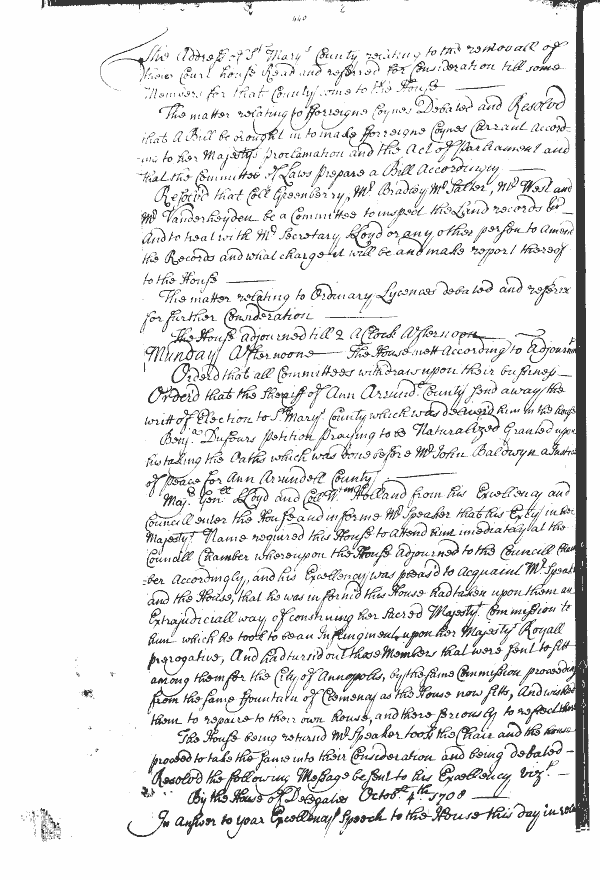 The Address of St Marys County relating to the removall of
their Court house Read and referred for Consideration till some
Members for that County come to the House
The matter relating to fforreigne Coynes Debated and Resolved
that A Bill be brought in to make fforreigne Coynes Currant Accord-
ing to her Majestys Proclamation and the Act of Parliament and
that the Committee of Laws prepare a Bill Accordingly
Resolved that Coll Greenberry, Mr Bradley Mr Mr West and
Mr Vanderheyden be a Committee to inspect the Land records
And to treat with Mr Secretary Lloyd or any other person to Amend
the Records and what charge it will be and make report thereof
to the House
The matter relating to Ordinary Lycences debated and referr
for further Consideration
The House Adjourned till 2 A Clock Afternoon
Munday Afternoone The House mett According to Adjournm
Orderd that all Committees withdraw upon their business
Orderd that the Sheriff of Ann Arund. County send away the
writt of Election to St Marys County which was delivered him in the house
Benj.a Dufours Petition Praying to be Naturalized Granted upon
his taking the Oaths which was done before Mr John Baldwyn a Justice
of Peace for Ann Arundell County
Maj.r Gen.ll Lloyd and Coll Wm Holland from his Excellency and
Councill enter the House and informe Mr Speaker that his Excy in her
Majestys Name required this House to Attend him imediataly at the
Councill Chamber whereupon the House Adjourned to the Councill Cham
-ber Accordingly, and his Excellency was pleasd to Acquaint Mr Speak
and the House, that he was informd this House had taken upon them an
Extrajudiciall way, of construing her Sacred Majestys Commission to
him which he took to be an Infringment upon her Majestys Royall
prerogative, And had turned out those Members that were sent to sitt
among them for the City of Annapolis, by the same Commission proceeding
from the same ffountain of Clemency as the House now sitts, And wished
them to repaire to their own house, and there seriously to reflect
The House being returned Mr Speaker took the Chair and the house
proceed to take the same into their Consideration and being debated
Resolvd the following Message be sent to his Excellency vizt.
By the House of Delegates Octobr. 4th 1708
In Answer to your Excellencys Speech to the House this day in